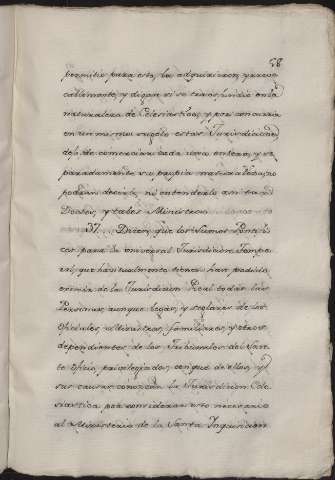 58
permitió para esto, la adquirieron, y
cablemente, y digan si se transfundió en la
naturaleza de Eclesiastica, y por concurrir
en un mismo sugeto estas Jurisdicciones
de comerciar cada una entera, y se
paradamente su propia naturaleza, no
podran decirlo, ni entenderlo tan
Doctos, y tales Ministros
37... Dicen, que los Sumos Pontifi
ces para la universal Jurisdiccion Tempo
ral, que havitualmente tienen han podido
eximir de la Jurisdiccion Real todas las
Personas, aunque legas, y seglares de los
Oficiales, Ministros, familiares, y otros
dependientes de los Tribunales del San
to Oficio, privilegiados, con que de ellos, y
sus causas conozcan la Jurisdiccion Ecle
siastica por considerar esto necesario
al Ministerio de la Santa Inquisicion